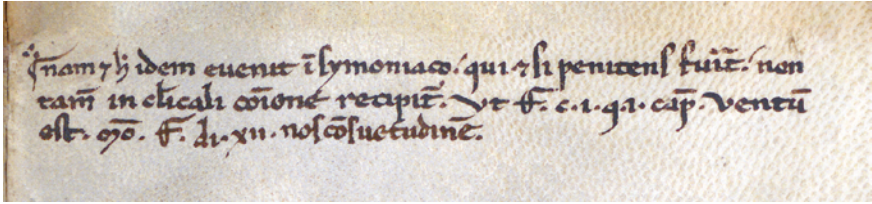 nam ⁊ h̄ idem euenit ī symoniaco. qui ⁊ si penitens fuit̄. non
tam̄ in cl̄icali cōione recipit̄. Vt s̄. c. i. q. i. cap̄. ventū
est. s̄. di. xii. nos cōsuetudinē.